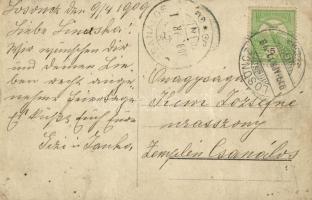 Losoncz den 9/4 1909
Liebe Lineska!
Wir wünschen Dir
und deinen Lieben
recht ange-
nehme Feiertage
Es küsst Euch Eure
Nagysága
Jozsefné
urasszony
Zemplén Csanálos
LOSONCZ